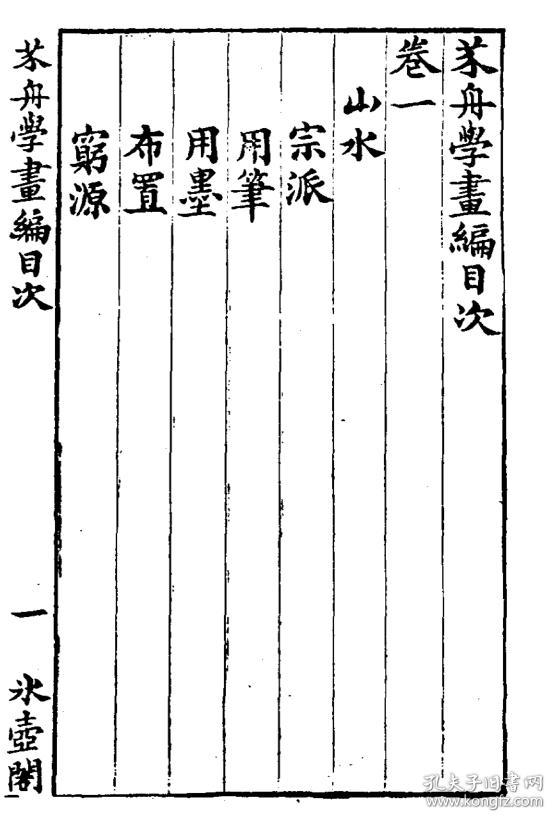 芥舟學畫編目次
卷一
山水
宗派
用筆
用墨
布置
窮源
芥舟學畫編目次
一
氷壺閣
孔夫子旧书网
www.kongfz.com